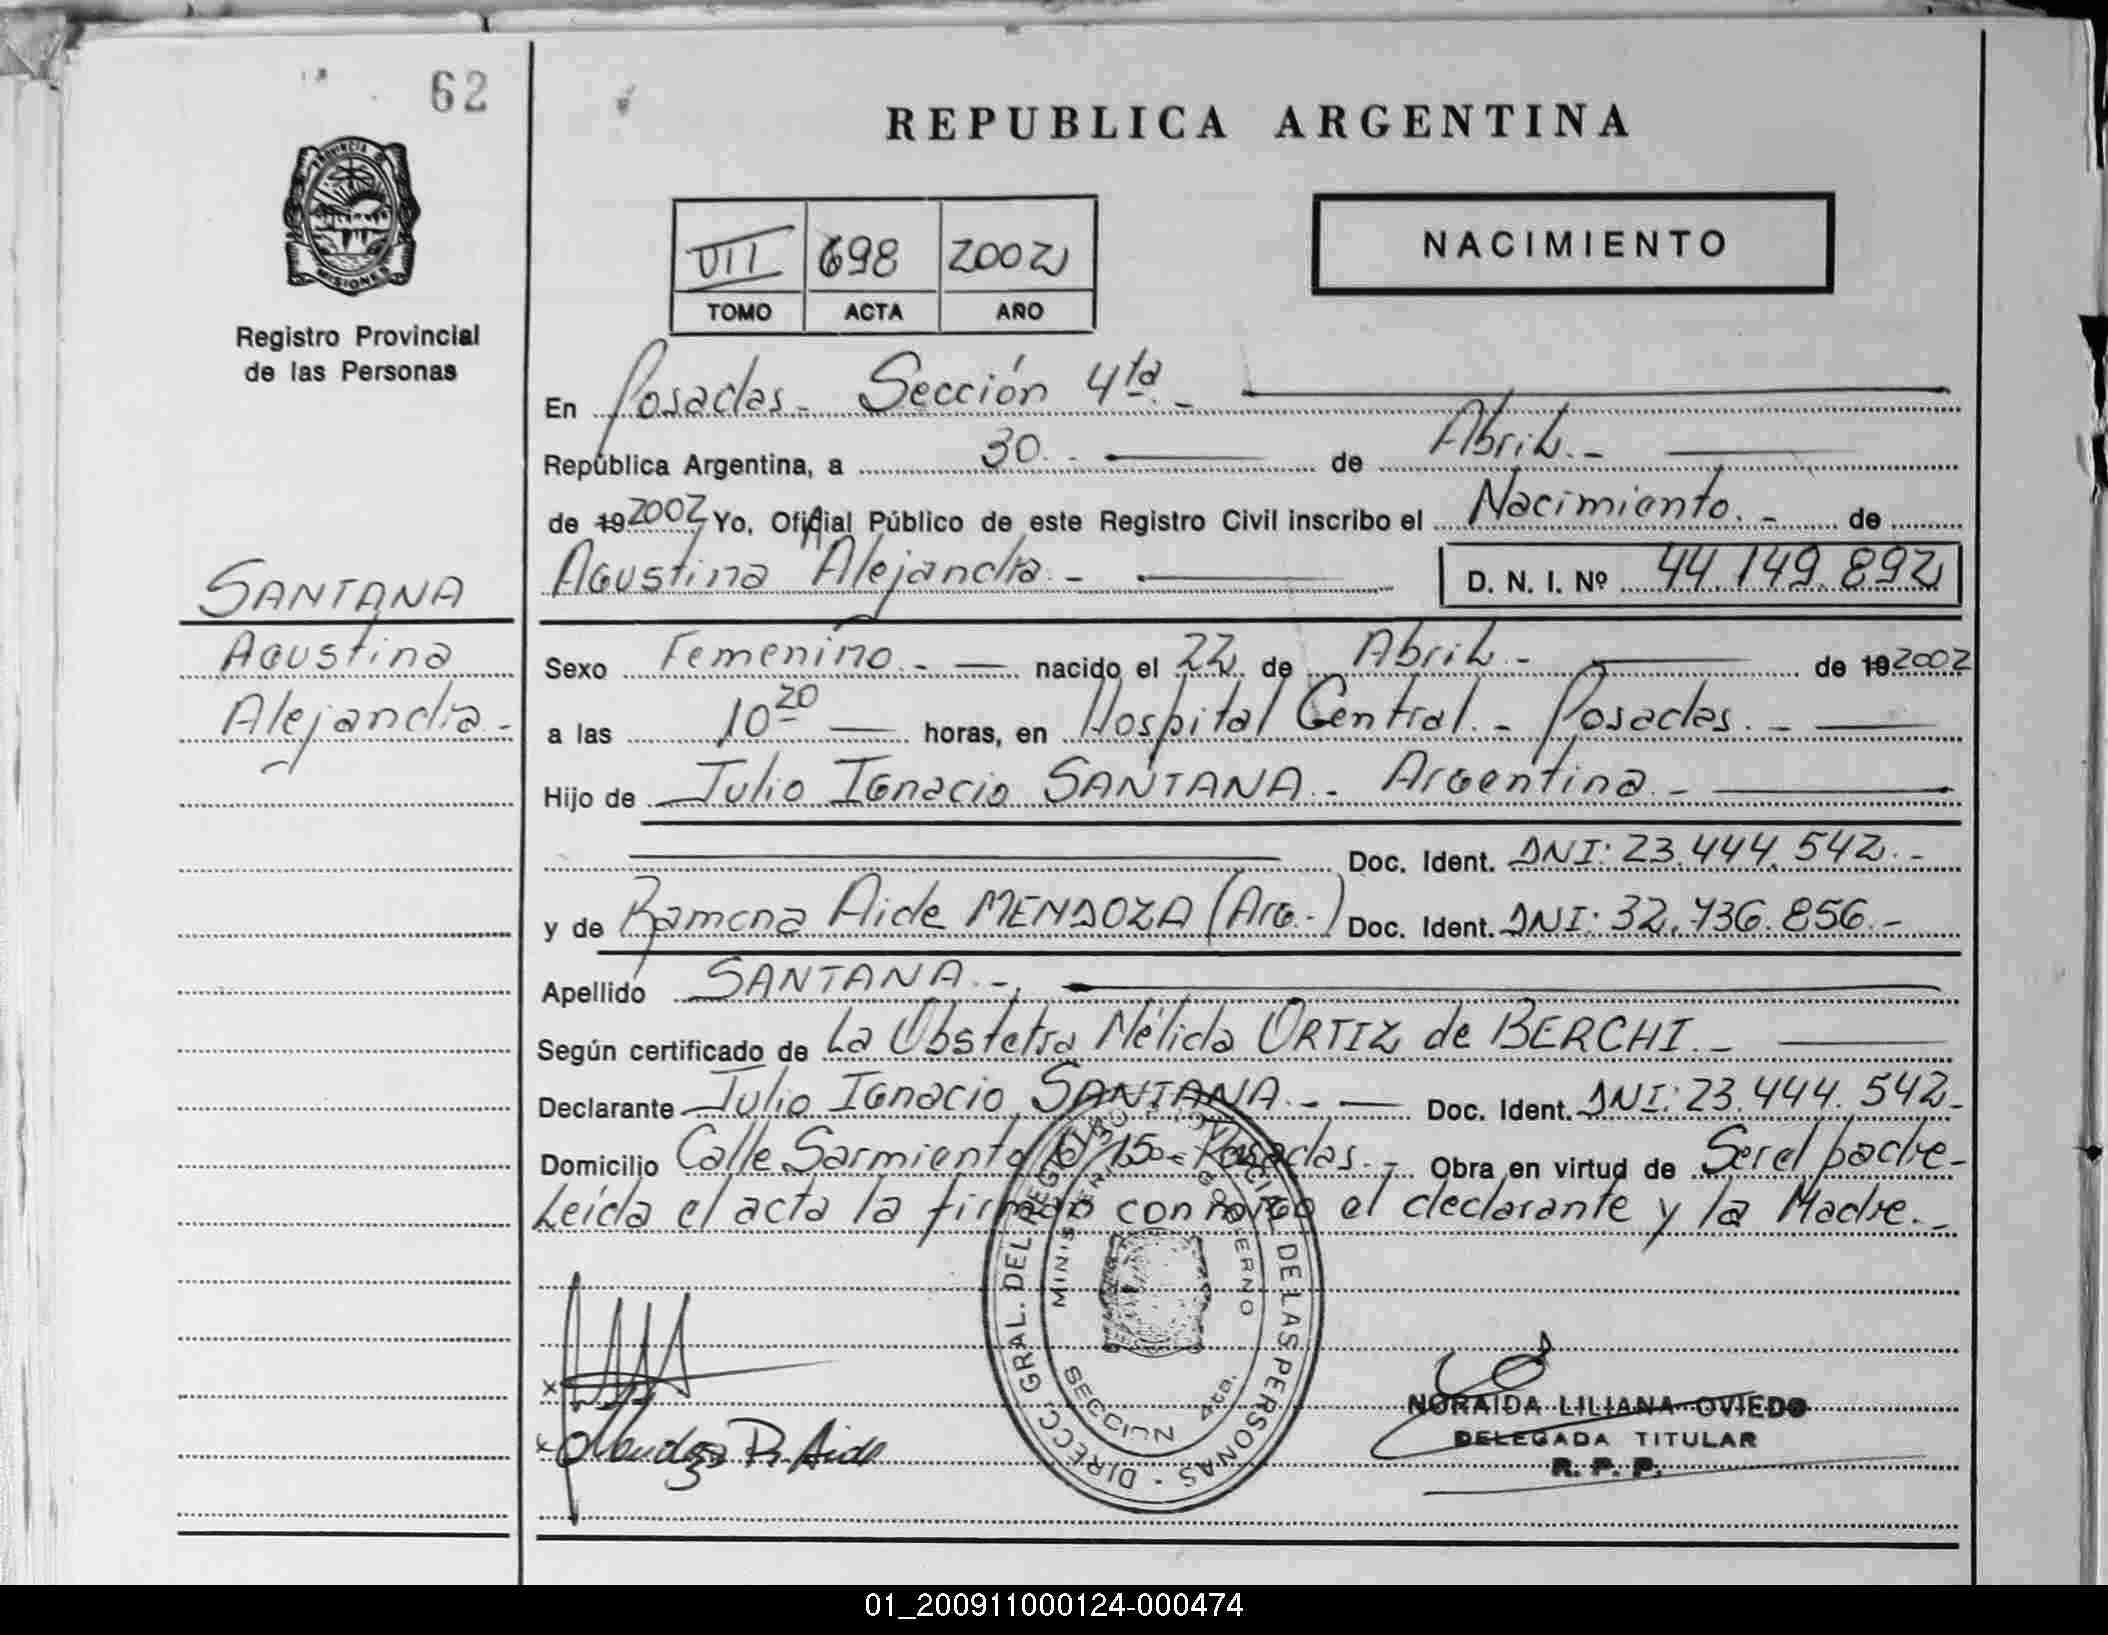 62
REPUBLICA ARGENTINA
PROVINCIA DE
MISIONES
Registro Provincial
de las Personas
VII 698 2002
TOMO ACTA AÑO
NACIMIENTO
En Posadas - Sección 4ta. -
República Argentina, a 30. - de Abril. -
de 19 2002 Yo, Oficial Público de este Registro Civil inscribo el Nacimiento. - de
Agustina Alejandra. - D. N. I. Nº 44.149.892
SANTANA
Agustina
Alejandra -
Sexo Femenino. - nacido el 22 de Abril - de 19 2002
a las 10 20 horas, en Hospital Central. - Posadas. -
Hijo de Julio Ignacio SANTANA - Argentina. -
Doc. Ident. DNI: 23.444.542. -
y de Ramona Aide MENDOZA (Arg.-) Doc. Ident. DNI: 32.736.856. -
Apellido SANTANA. -
Según certificado de La Obstetra Nélida ORTIZ de BERCHI. -
Declarante Julio Ignacio SANTANA. - Doc. Ident. DNI: 23.444.542 -
Domicilio Calle Sarmiento Posadas. - Obra en virtud de Ser el padre -
Leída el acta la firman conmigo el declarante y la Madre. -
DIRECC. GRAL. DEL REGISTRO PROVINCIAL DE LAS PERSONAS
MINISTERIO DE GOBIERNO
SECCION 4ta.
x
x Mendoza R. Aide
NORAIDA LILIANA OVIEDO
DELEGADA TITULAR
R. P. P.
01_200911000124-000474